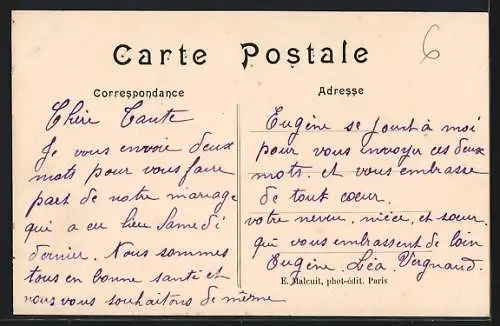 Carte Postale
6
Correspondance
Chère Tante
Je vous envoie deux
mots pour vous faire
part de notre mariage
qui a eu lieu Samedi
dernier. Nous sommes
tous en bonne santé et
nous vous souhaitons de même
Adresse
Eugène se joint à moi
pour vous envoyer ces deux
mots. et vous embrasse
de tout cœur.
votre neveu, nièce, et sœur.
qui vous embrassent de loin
Eugène. Léa. Vergnaud.
E. Malcuit, phot-édit. Paris